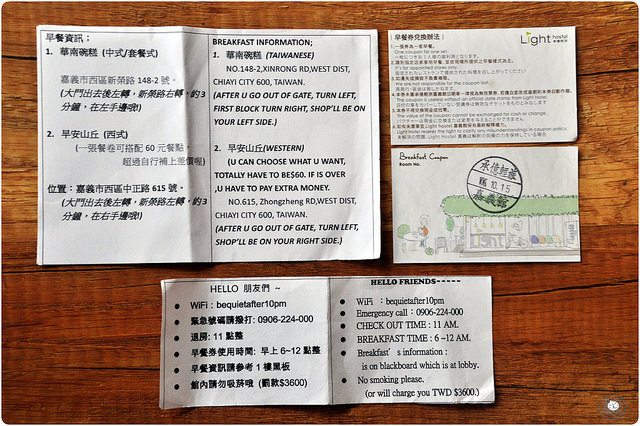 早餐資訊：
1. 華南碗糕 (中式/套餐式)
嘉義市西區新榮路 148-2 號。
(大門出去後左轉，新榮路右轉，約3
分鐘，在左手邊哦!)
2. 早安山丘 (西式)
(一張餐卷可搭配 60 元餐點，
超過自行補上差價喔)
位置：嘉義市西區中正路 615 號。
(大門出去後左轉，新榮路左轉，約3
分鐘，在右手邊哦!)
BREAKFAST INFORMATION;
1. 華南碗糕 (TAIWANESE)
NO.148-2,XINRONG RD,WEST DIST,
CHIAYI CITY 600, TAIWAN.
(AFTER U GO OUT OF GATE, TURN LEFT,
FIRST BLOCK TURN RIGHT, SHOP'LL BE ON
YOUR LEFT SIDE.)
2. 早安山丘(WESTERN)
(U CAN CHOOSE WHAT U WANT,
TOTALLY HAVE TO BE$60. IF IS OVER
,U HAVE TO PAY EXTRA MONEY.
NO.615, Zhongzheng RD,WEST DIST,
CHIAYI CITY 600, TAIWAN.
(AFTER U GO OUT OF GATE, TURN LEFT,
SHOP'LL BE ON YOUR RIGHT SIDE.)
早餐券兌換辦法：
Light hostel
1.一張券為一客早餐。
One coupon for one set.
It's for appointed stores only.
We are not responsible for the coupon lost.
The coupon is useless without an official date stamp from Light Hostel.
The value of the coupon cannot be exchanged for cash or change.
Light Hostel reserves the right to clarify any misunderstandings in coupon policy.
Breakfast Coupon
Room No.
承億輕旅
10.15
嘉義館
Light
HELLO 朋友們 ~
WiFi : bequietafter10pm
緊急號碼請撥打: 0906-224-000
退房: 11 點整
早餐券使用時間: 早上 6~12 點整
早餐資訊請參考 1 樓黑板
館內請勿吸菸哦 (罰款$3600)
HELLO FRIENDS-----
WiFi : bequietafter10pm
Emergency call : 0906-224-000
CHECK OUT TIME : 11 AM.
BREAKFAST TIME : 6 ~12 AM.
Breakfast's information :
is on blackboard which is at lobby.
No smoking please.
(or will charge you TWD $3600.)